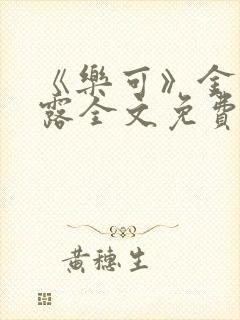 《樂可》金
露全文免費
黃穗生